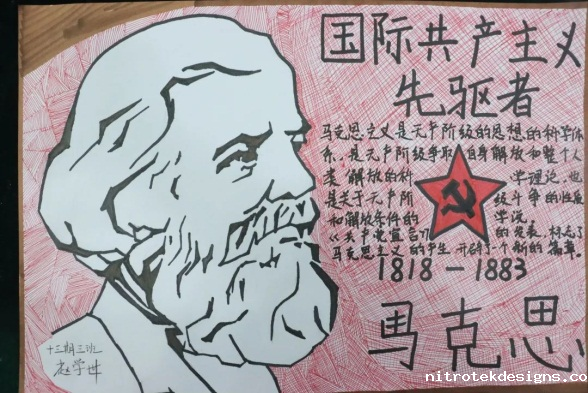 国际共产主义
先驱者
马克思主义是无产阶级的思想的科学体
系。是无产阶级争取自身解放和整个人
类解放的科 学理论。也
是关于无产阶 级斗争的性质
和解放条件的 学说。
《共产党宣言》 的发表，标志了
马克思主义的产生 开启了一个新的篇章。
1818 — 1883
马克思
十三期三班
赵学世
nitrotekdesigns.co